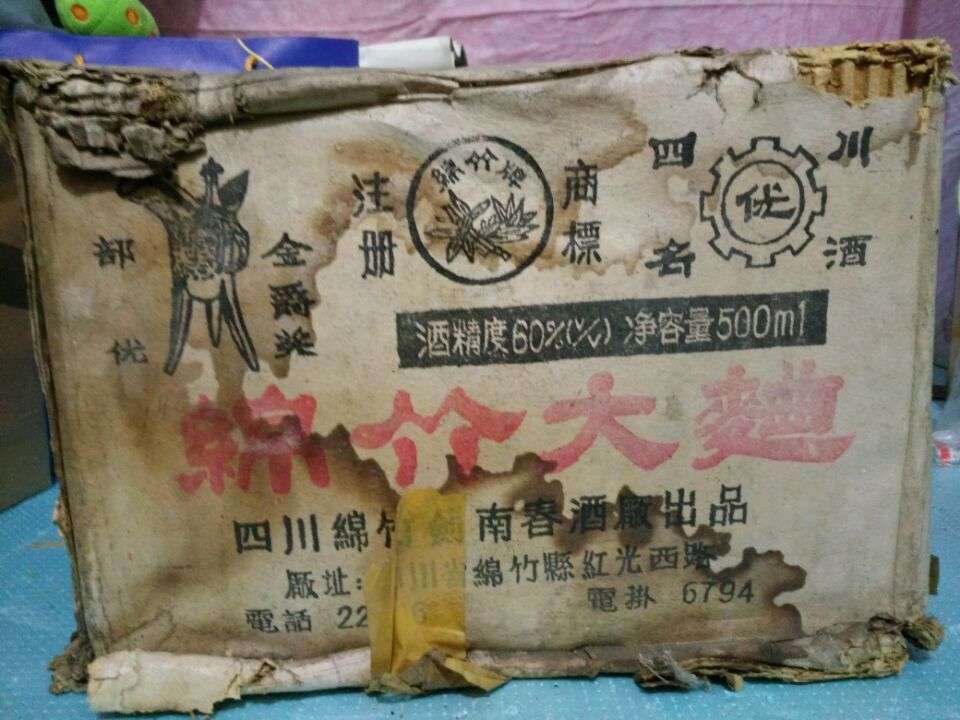 部优
金爵奖
注册
綿竹牌
商標
四川
优
名酒
酒精度60%(V/V) 净容量500ml
綿竹大麯
四川綿竹劍南春酒廠出品
廠址:四川省綿竹縣紅光西路
電話 22 6
電掛 6794